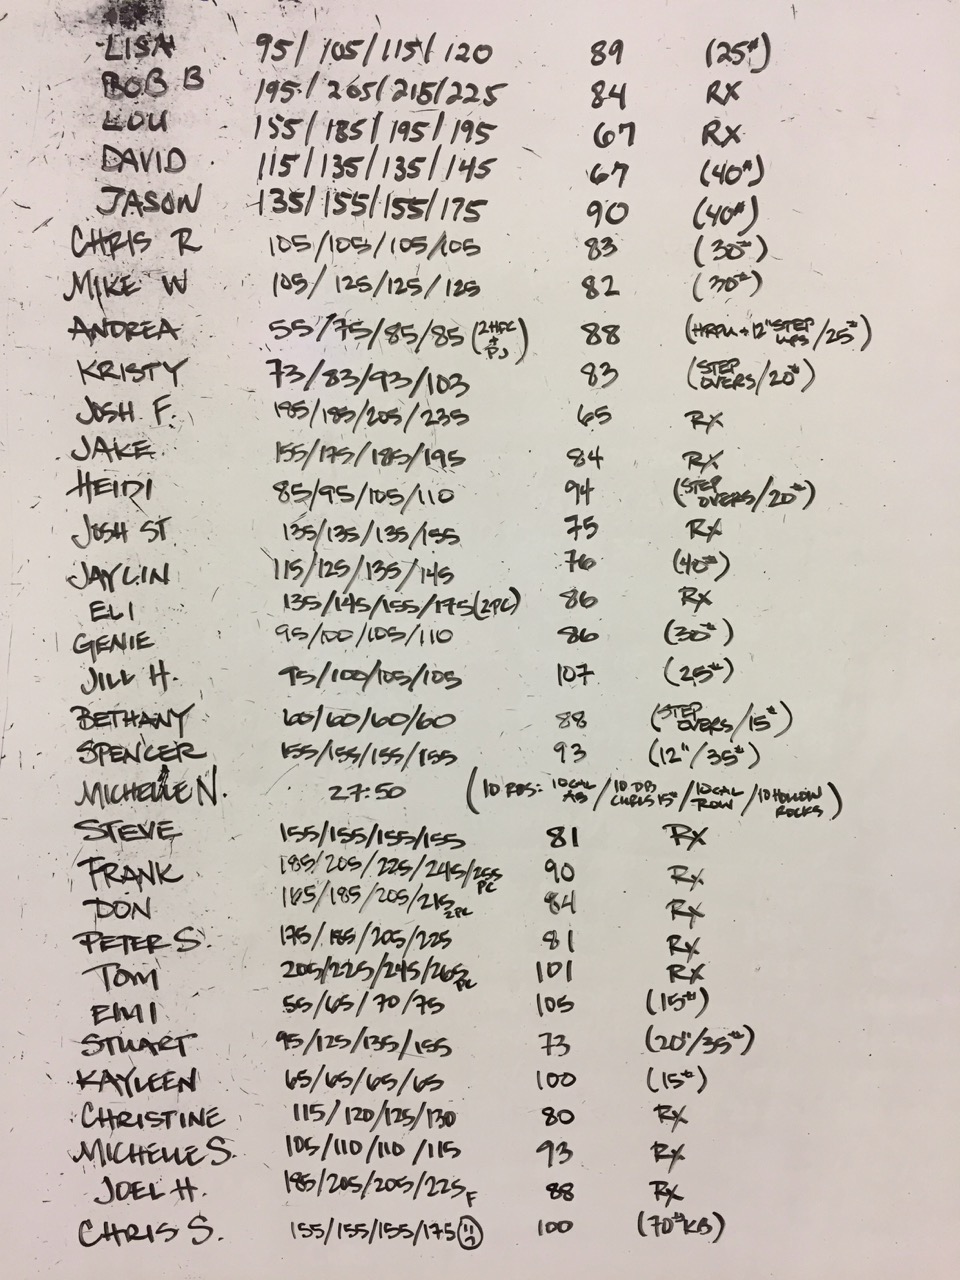 LISA 95/105/115/120 89 (25#)
BOB B 195/205/215/225 84 RX
LOU 155/185/195/195 67 RX
DAVID 115/135/135/145 67 (40#)
JASON 135/155/155/175 90 (40#)
CHRIS R 105/105/105/105 83 (30#)
MIKE W 105/125/125/125 82 (30#)
ANDREA 55/75/85/85 (2HPC + PJ) 88 (HRPU + 12" STEP UPS/25#)
KRISTY 73/83/93/103 83 (STEP OVERS/20#)
JOSH F. 185/185/205/235 65 RX
JAKE 155/175/185/195 84 RX
HEIDI 85/95/105/110 94 (STEP OVERS/20#)
JOSH ST 135/135/135/155 75 RX
JAYLIN 115/125/135/145 76 (40#)
ELI 135/145/155/175 (2PC) 86 RX
GENIE 95/100/105/110 86 (30#)
JILL H. 95/100/105/105 107 (25#)
BETHANY 60/60/60/60 88 (STEP OVERS/15#)
SPENCER 155/155/155/155 93 (12"/35#)
MICHELLE N. 27:50 (10 RDS: 10 CAL AB/10 DB CURLS 15#/10 CAL ROW/10 HOLLOW ROCKS)
STEVE 155/155/155/155 81 RX
FRANK 185/205/225/245/255 PC 90 RX
DON 165/185/205/215 2PC 84 RX
PETER S. 175/185/205/225 81 RX
TOM 205/225/245/265 PC 101 RX
EIMI 55/65/70/75 105 (15#)
STUART 95/125/135/155 73 (20"/35#)
KAYLEEN 65/65/65/65 100 (15#)
CHRISTINE 115/120/125/130 80 RX
MICHELLE S. 105/110/110/115 93 RX
JOEL H. 185/205/205/225 F 88 RX
CHRIS S. 155/155/155/175 100 (70# KB)